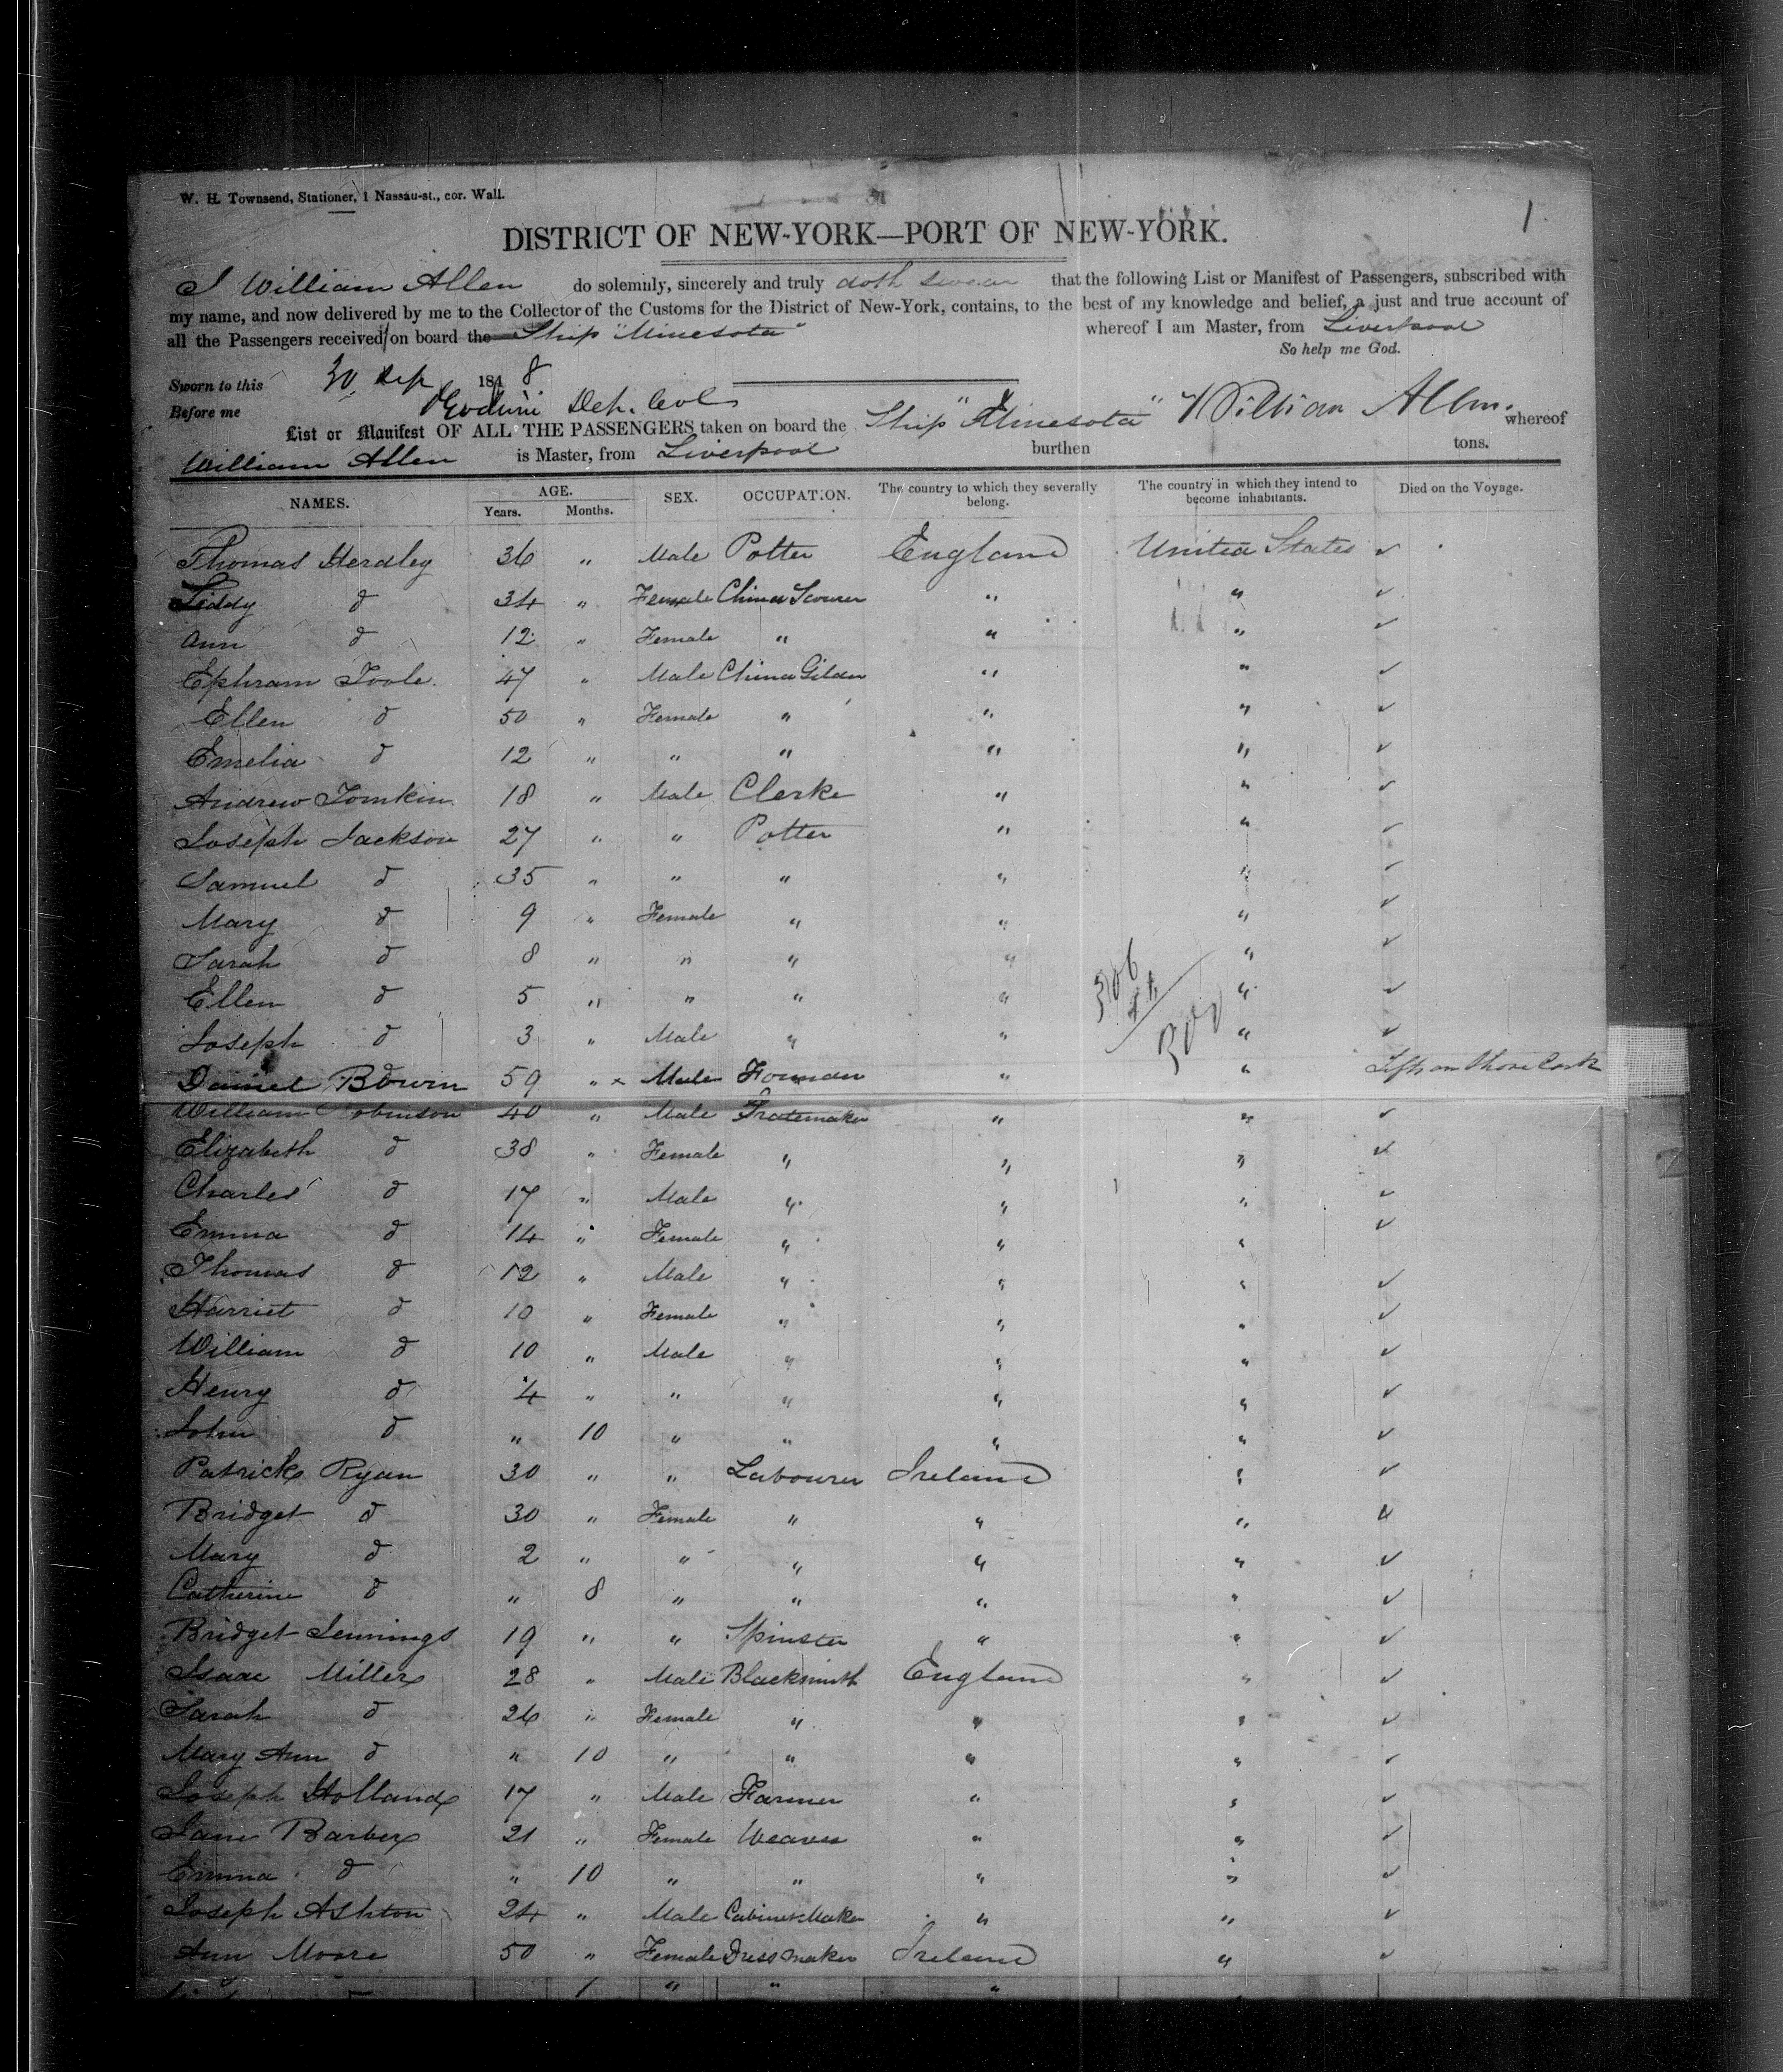 W. H. Townsend, Stationer, 1 Nassau-st., cor. Wall.
1
DISTRICT OF NEW-YORK—PORT OF NEW-YORK.
I William Allen do solemnly, sincerely and truly doth swear that the following List or Manifest of Passengers, subscribed with
my name, and now delivered by me to the Collector of the Customs for the District of New-York, contains, to the best of my knowledge and belief, a just and true account of
all the Passengers received on board the Ship "Minesota" whereof I am Master, from Liverpool
So help me God.
Sworn to this 30 Sep 1848
Before me Dep. Col William Allen.
List or Manifest OF ALL THE PASSENGERS taken on board the Ship "Minesota" whereof
William Allen is Master, from Liverpool burthen tons.
NAMES. AGE. Years. Months. SEX. OCCUPATION. The country to which they severally belong. The country in which they intend to become inhabitants. Died on the Voyage.
Thomas Herdley 36 " Male Potter England United States ✓
Liddy d 34 " Female China Scourer " " ✓
Ann d 12 " Female " " " ✓
Ephram Toole 47 " Male China Gilder " " ✓
Ellen d 50 " Female " " " ✓
Emelia d 12 " " " " " ✓
Andrew Tomkin 18 " Male Clerke " " ✓
Joseph Jackson 27 " " Potter " " ✓
Samuel d 35 " " " " " ✓
Mary d 9 " Female " " " ✓
Sarah d 8 " " " " " ✓
Ellen d 5 " " " " " ✓
Joseph d 3 " Male " " " ✓
306
300
Daniel Bowin 59 " x Male " " Left on Shore Cork
William Robinson 40 " Male " " ✓
Elizabeth d 38 " Female " " " ✓
Charles d 17 " Male " " " ✓
Emma d 14 " Female " " " ✓
Thomas d 12 " Male " " " ✓
Harriet d 10 " Female " " " ✓
William d 10 " Male " " " ✓
Henry d 4 " " " " " ✓
John d " 10 " " " " ✓
Patrick Ryan 30 " " Labourer Ireland " ✓
Bridget d 30 " Female " " " ✓
Mary d 2 " " " " " ✓
Catherine d " 8 " " " " ✓
Bridget Jennings 19 " " Spinster " " ✓
Isaac Miller 28 " Male Blacksmith England " ✓
Sarah d 26 " Female " " " ✓
Mary Ann d " 10 " " " " ✓
Joseph Holland 17 " Male Farmer " " ✓
Jane Barber 21 " Female Weaver " " ✓
Emma d " 10 " " " " ✓
Joseph Ashton 24 " Male Cabinet Maker " " ✓
Ann Moore 50 " Female Dress maker Ireland " ✓